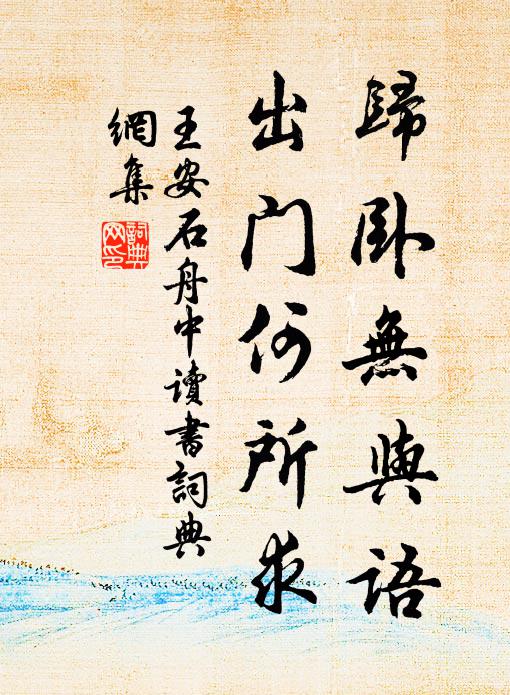 歸臥無與語
出门何所求
王安石舟中讀書詞典
網集
詞典
网印